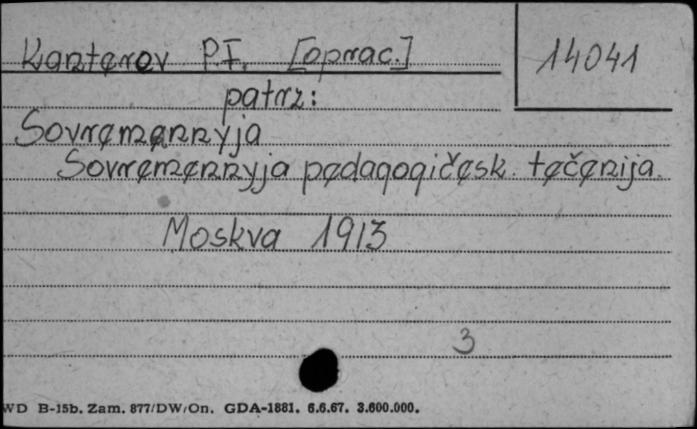 Kanterev P.F. [oprac.]
14041
patrz:
Sovremennyja
Sovremennyja pedagogičesk. tečenija.
Moskva 1913
3
WD B-15b. Zam. 877/DW/On. GDA-1881. 6.6.67. 3.600.000.